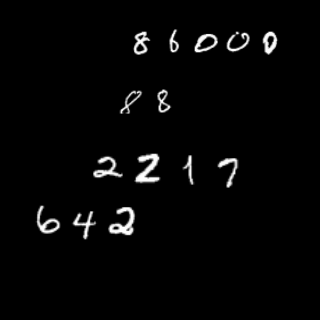 86000
88
2217
642